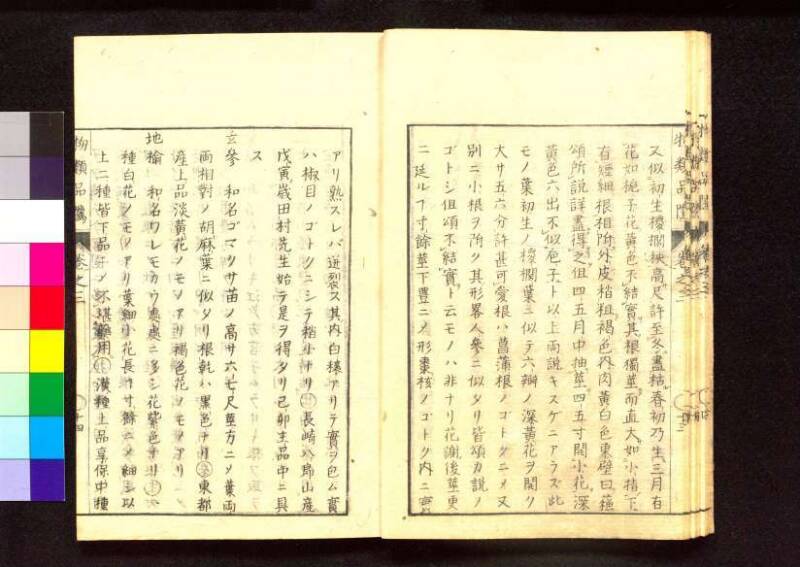 又似初生椶櫚秧高尺許至冬盡枯春初乃生三月有
花如梔子花黄色不結實其根獨莖而直大如小指下
有短細根相附外皮稍粗褐色内肉黄白色東壁曰蘓
頌所說詳盡得之但四五月中抽莖四五寸開小花深
黄色六出不似巵子ト以上両說キスゲニアラズ此
モノ葉初生ノ椶櫚葉ニ似テ六瓣ノ深黄花ヲ開ク
大サ五六分許甚可愛根ハ菖蒲根ノゴトクニメ又
別ニ小根ヲ附ク其形畧人參ニ似タリ皆頌カ說ノ
ゴトシ但頌不結實ト云モノハ非ナリ花謝後莖更
ニ延ルフ寸餘莖下豊ニメ形棗核ノゴトク内ニ
物類品隲 巻之三
アリ熟スレバ迸裂ス其内白穰アリテ實ヲ包ム實
ハ椒目ノゴトクニシテ稍小ナリ長崎八郎山産
戊寅歳田村先生始テ是ヲ得タリ己卯主品中ニ具
ス
玄參 和名ゴマクサ苗ノ高サ六七尺莖方ニメ葉両
両相對ノ胡麻葉ニ似タリ根乾ハ黒色ナリ東都
産上品淡黄花ノモノアリ褐色花ノモノアリ
地榆 和名ワレモカウ處處ニ多シ花紫色ナリ
種白花ノモノアリ葉細小花長サ寸餘ニメ細シ以
上二種皆下品ニメ不堪藥用漢種上品享保中種
物類品隲 巻之三 十四